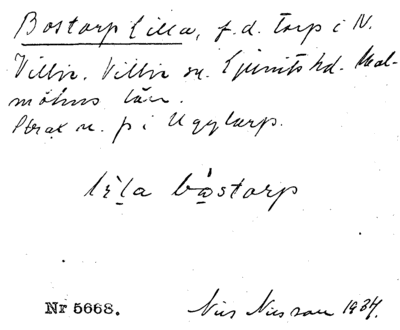 Bostorp Lilla, f.d. torp i N.
Villie. Villie sn. Ljunits hd. Mal-
möhus län.
Strax n. p i Uggltarp.
lìla båstorp
Nr 5668. Nils Nilsson 1934.